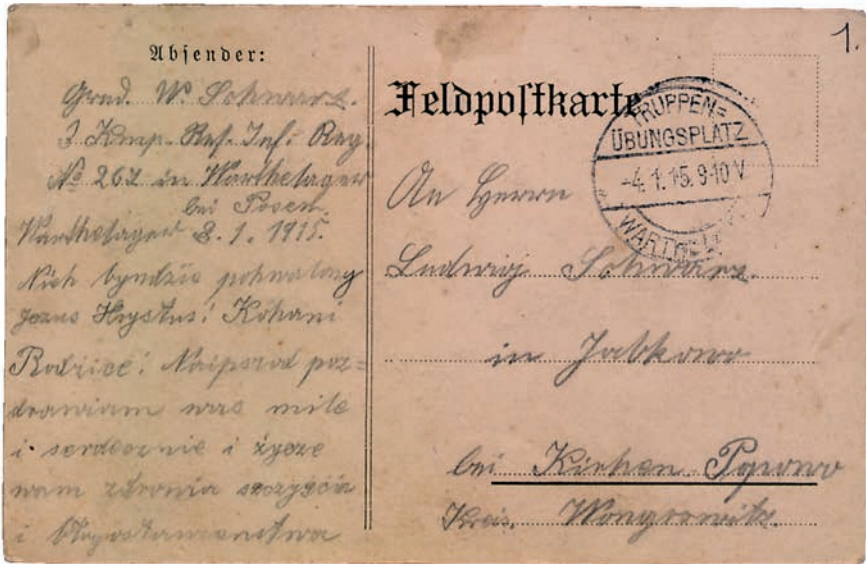 1.
Absender:
Gred. W. Schwarz.
3 Komp. Res. Inf. Reg.
No 267 in Warthelager
bei Posen.
Warthelager 8.1.1915.
Niech byndzie pohwalony
Jezus Hrystus! Kohani
Rodzice! Naiporod poz=
drawiam was mile
i serdecznie i życze
wam zdrowia szczyścia
i błogosławienstwa
Feldpostkarte
TRUPPEN=
ÜBUNGSPLATZ
-4.1.15.9-10V
An Herrn
Ludwig Schwarz.
in Jabkowo
bei Kirchen Popowo
Kreis. Wongrowitz.